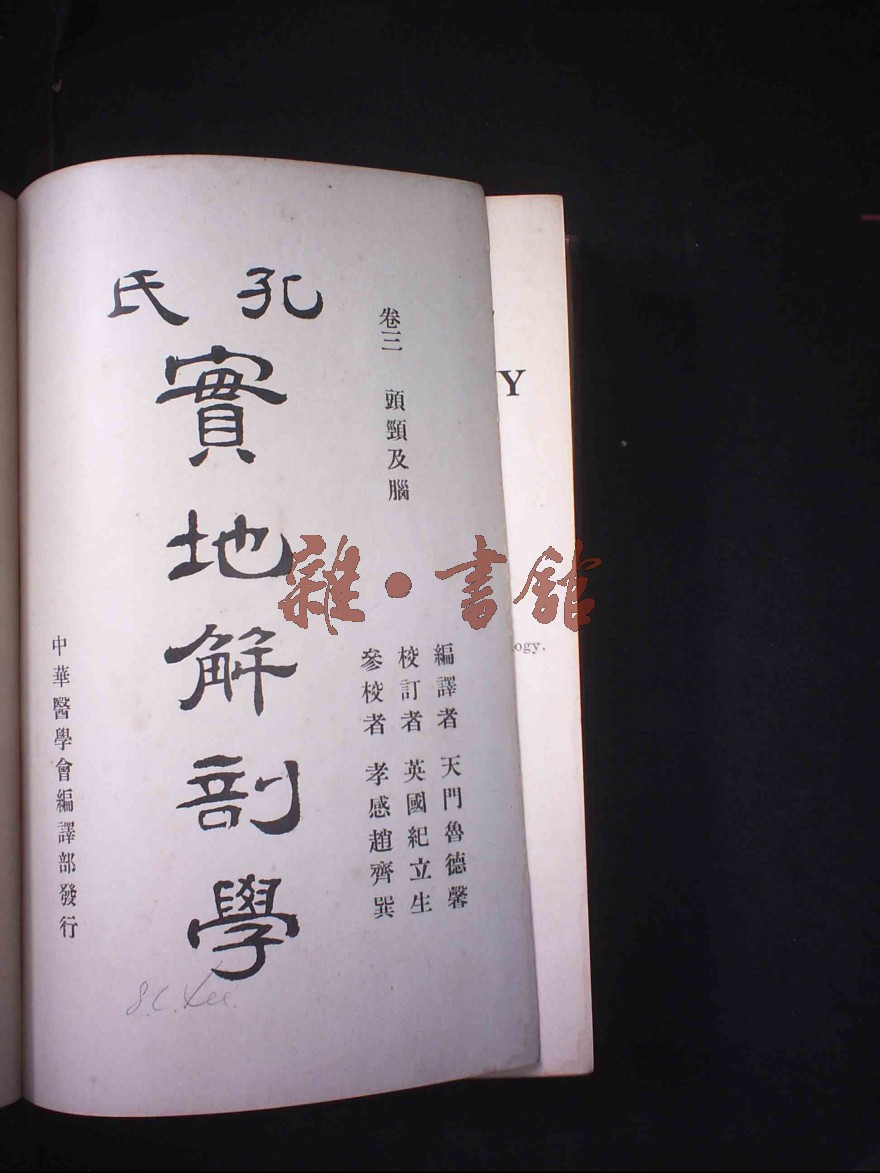 卷三 頭頸及腦
編譯者 天門魯德馨
校訂者 英國紀立生
參校者 孝感趙齊巽
孔氏
實地解剖學
中華醫學會編譯部發行
S.C. Lee.
雜·書館
Y
ogy.